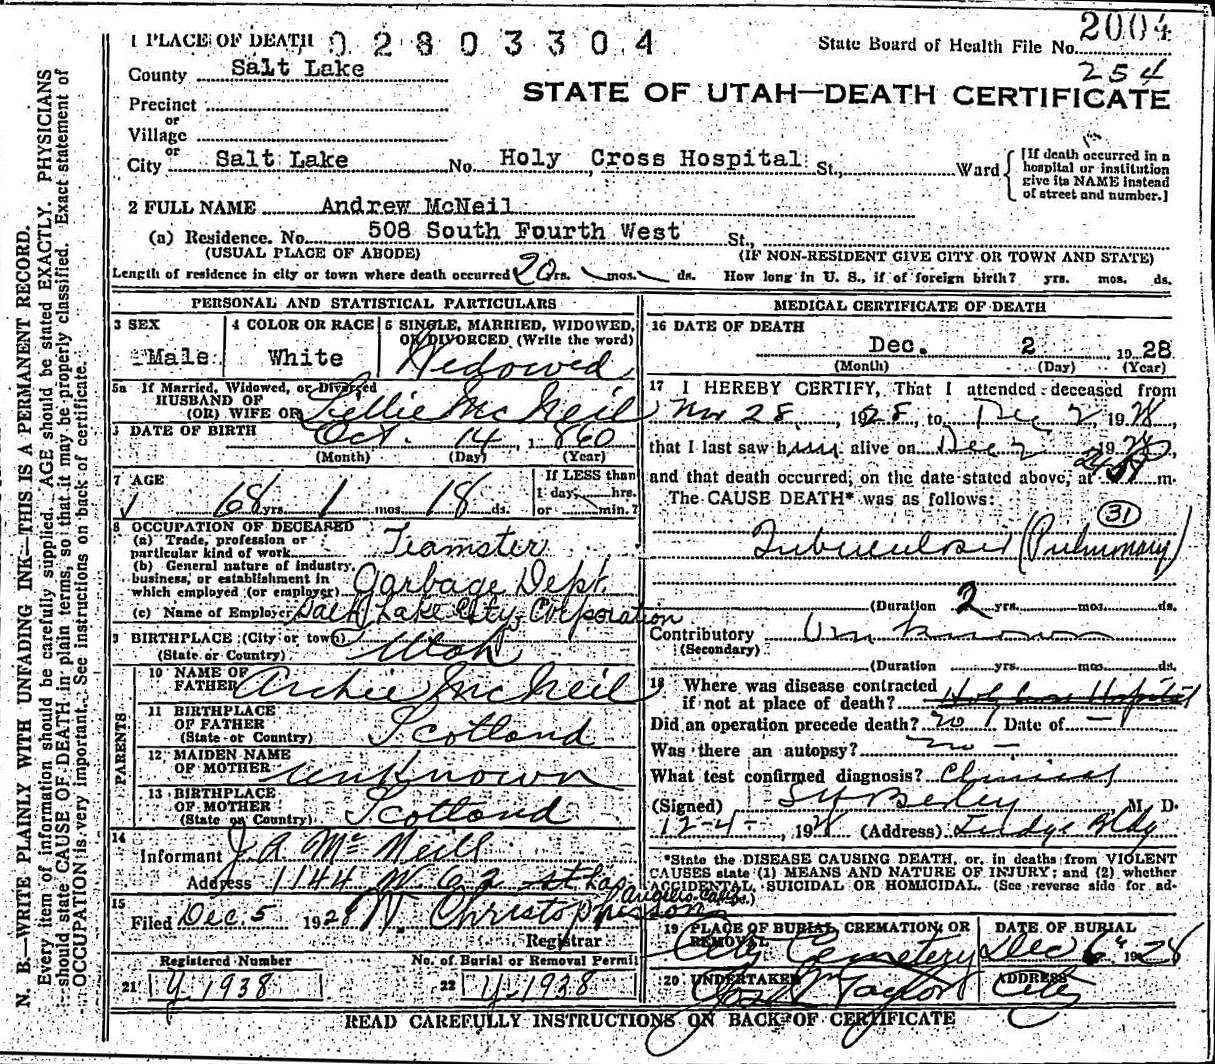 2004
1 PLACE OF DEATH 02803304
State Board of Health File No.
254
County Salt Lake
STATE OF UTAH—DEATH CERTIFICATE
Precinct
or
Village
or
City Salt Lake No. Holy Cross Hospital St., Ward
[If death occurred in a hospital or institution give its NAME instead of street and number.]
2 FULL NAME Andrew McNeil
(a) Residence. No. 508 South Fourth West St.,
(USUAL PLACE OF ABODE) (IF NON-RESIDENT GIVE CITY OR TOWN AND STATE)
Length of residence in city or town where death occurred 20 yrs. mos. ds. How long in U. S., if of foreign birth? yrs. mos. ds.
PERSONAL AND STATISTICAL PARTICULARS
3 SEX
Male
4 COLOR OR RACE
White
5 SINGLE, MARRIED, WIDOWED, OR DIVORCED (Write the word)
Widowed
5a If Married, Widowed, or Divorced
HUSBAND OF
(OR) WIFE OF Lillie McNeil
DATE OF BIRTH Oct. 14, 1860
(Month) (Day) (Year)
7 AGE
68 yrs. 1 mos. 18 ds.
If LESS than
1 day, hrs.
or min.?
8 OCCUPATION OF DECEASED
(a) Trade, profession or
particular kind of work Teamster
(b) General nature of industry,
business, or establishment in
which employed (or employer) Garbage Dept.
(c) Name of Employer Salt Lake City Corporation
9 BIRTHPLACE (City or town)
(State or Country) Utah
PARENTS
10 NAME OF
FATHER Archie McNeil
11 BIRTHPLACE
OF FATHER
(State or Country) Scotland
12 MAIDEN NAME
OF MOTHER unknown
13 BIRTHPLACE
OF MOTHER
(State or Country) Scotland
14
Informant J. A. McNeill
Address 1144 W. 62 st Los Angeles Calif.
15
Filed Dec. 5 1928 Christopherson
Registrar
Registered Number
21 Y-1938
No. of Burial or Removal Permit
22 Y-1938
MEDICAL CERTIFICATE OF DEATH
16 DATE OF DEATH
Dec. 2, 1928
(Month) (Day) (Year)
17 I HEREBY CERTIFY, That I attended deceased from
Nov 28, 1928, to Dec 2, 1928,
that I last saw him alive on Dec 2 1928,
and that death occurred, on the date stated above, at m.
The CAUSE DEATH* was as follows:
31
Tuberculosis (Pulmonary)
(Duration 2 yrs. mos. ds.
Contributory Unknown
(Secondary)
(Duration yrs. mos. ds.
18 Where was disease contracted
if not at place of death? Holy Cross Hospital
Did an operation precede death? no Date of —
Was there an autopsy? no —
What test confirmed diagnosis? Clinical
(Signed) M. D.
12-4-, 1928 (Address) Judge Bldg
*State the DISEASE CAUSING DEATH, or, in deaths from VIOLENT
CAUSES state (1) MEANS AND NATURE OF INJURY; and (2) whether
ACCIDENTAL, SUICIDAL OR HOMICIDAL. (See reverse side for ad-
19 PLACE OF BURIAL, CREMATION, OR REMOVAL
City Cemetery
DATE OF BURIAL
Dec 6" 1928
20 UNDERTAKER
Taylor
ADDRESS
City
READ CAREFULLY INSTRUCTIONS ON BACK OF CERTIFICATE
N. B.—WRITE PLAINLY WITH UNFADING INK—THIS IS A PERMANENT RECORD.
Every item of information should be carefully supplied. AGE should be stated EXACTLY. PHYSICIANS
should state CAUSE OF DEATH in plain terms, so that it may be properly classified. Exact statement of
OCCUPATION is very important. See instructions on back of certificate.